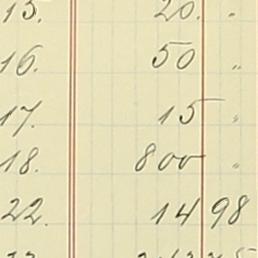 15. 20. "
16. 50 "
17. 15 "
18. 800 "
22. 14 98